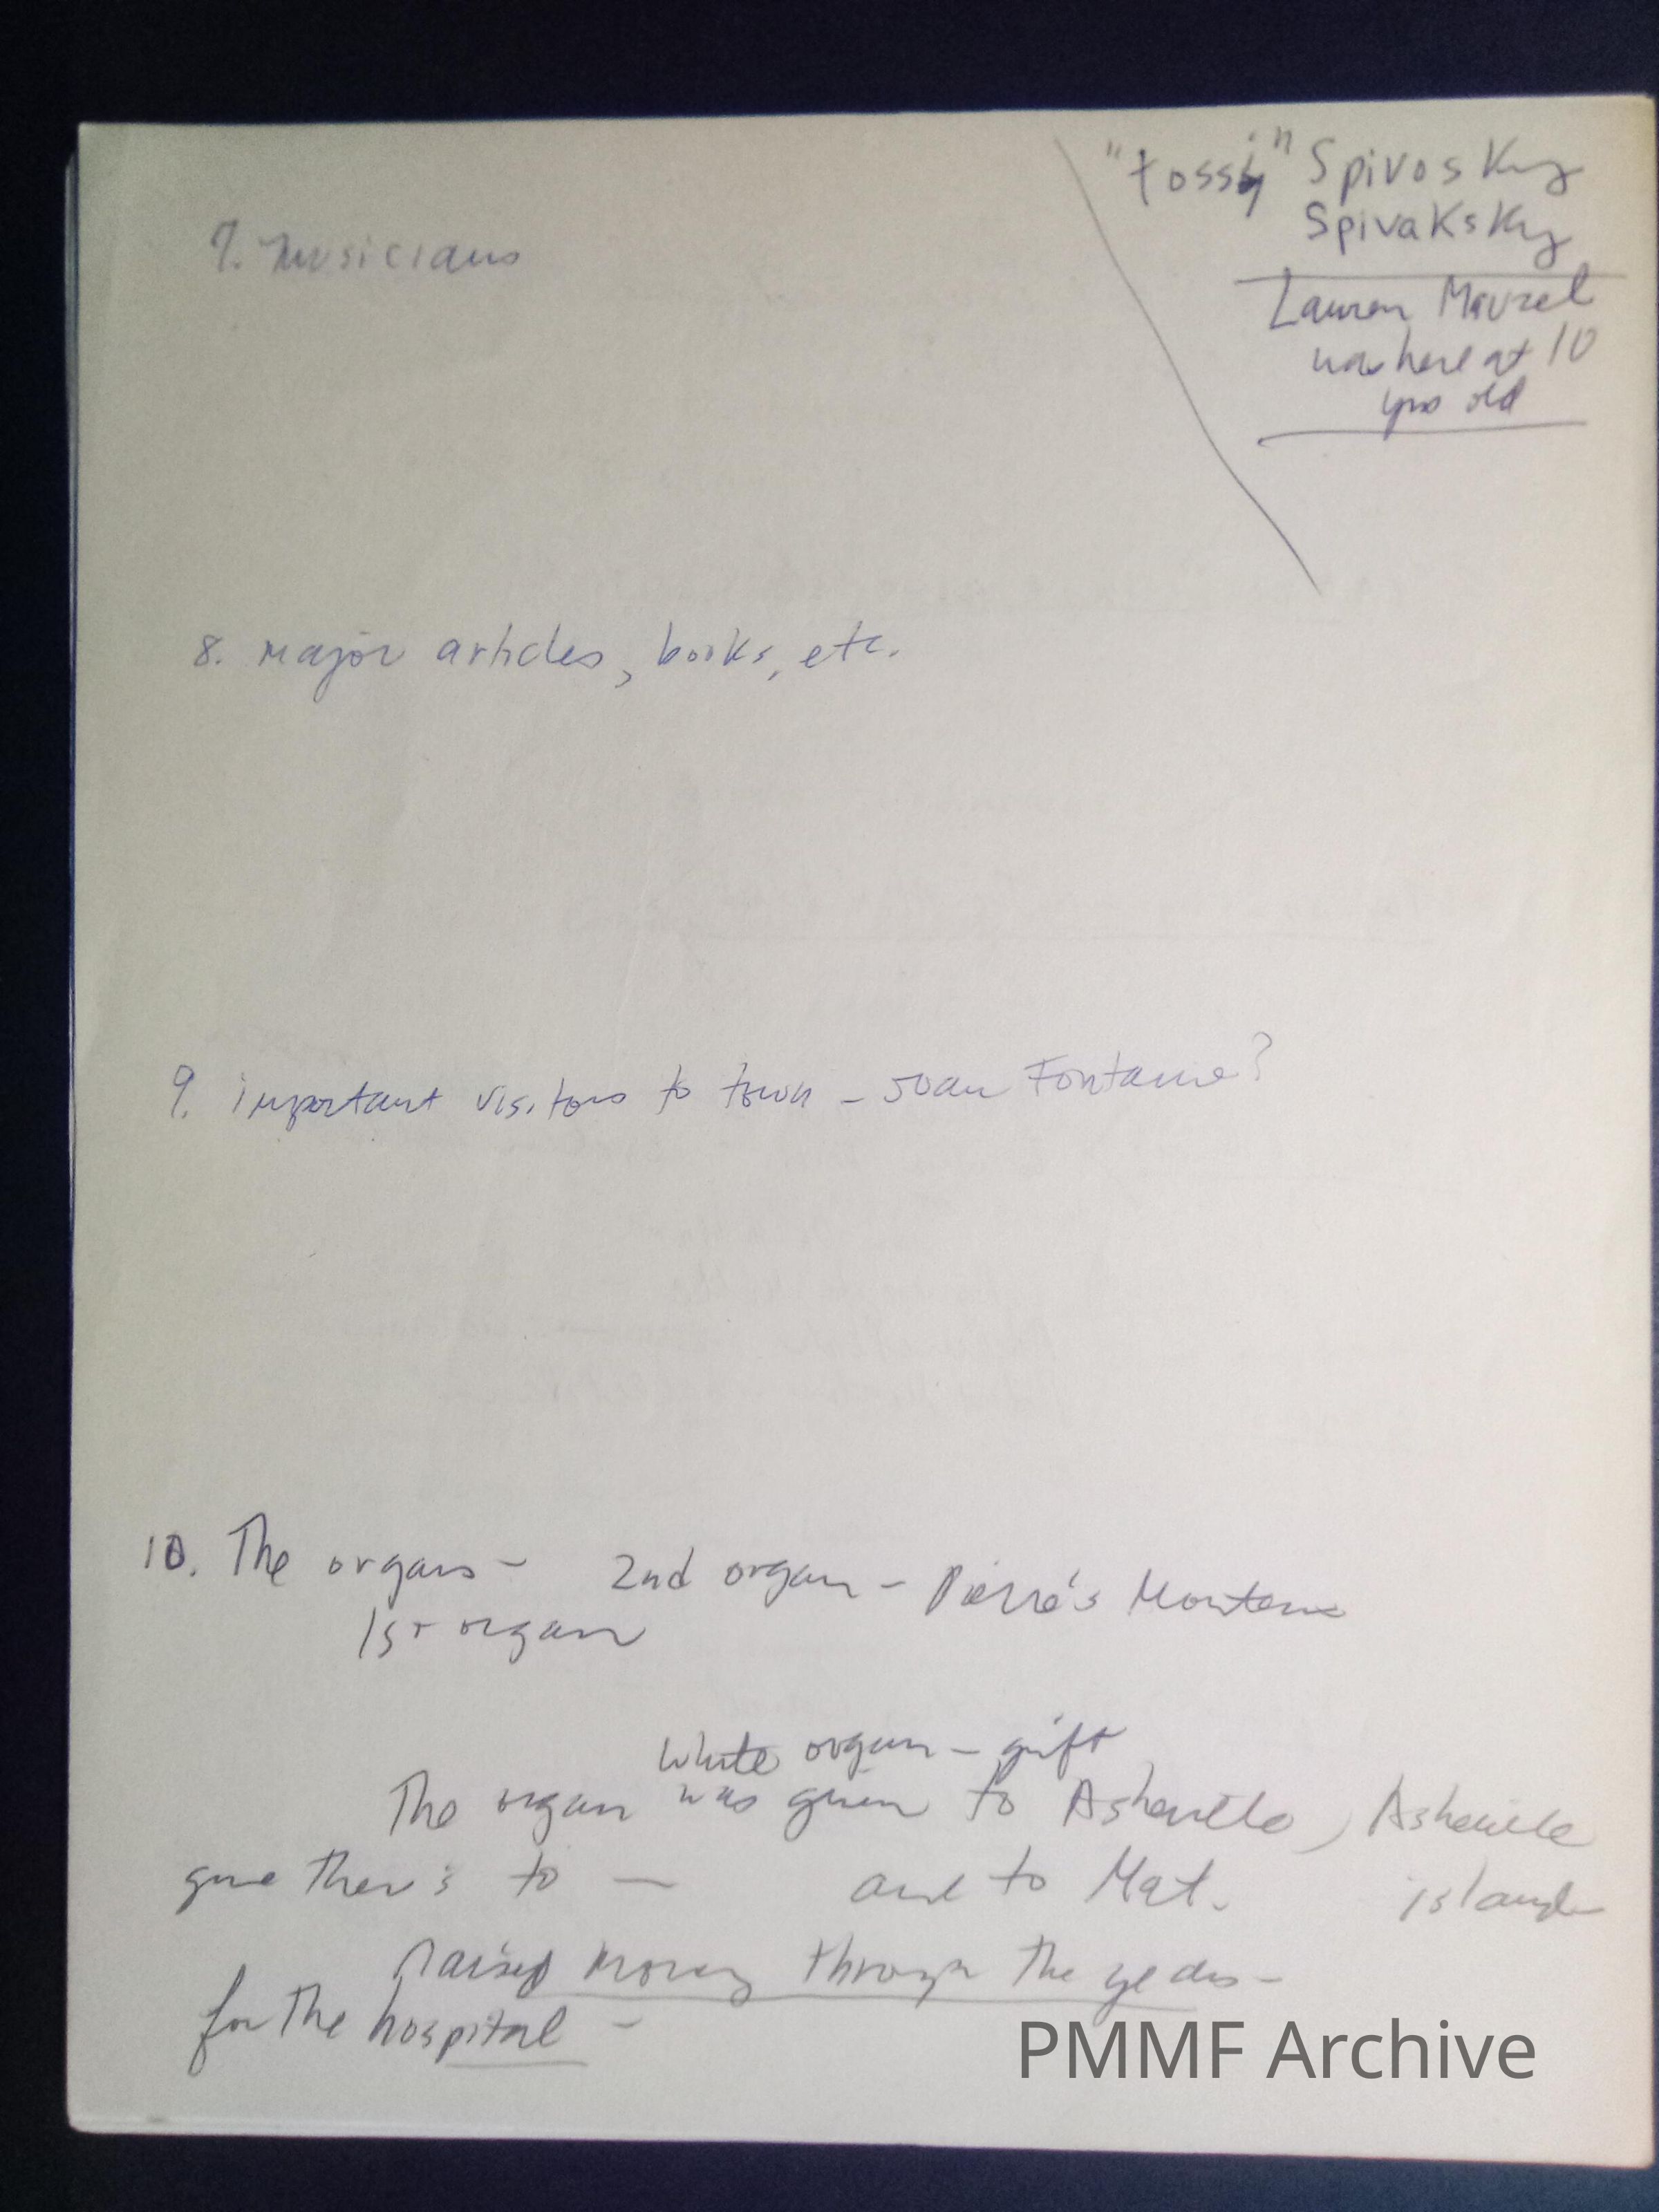 "Tossy" Spivosky
Spivaksky
Lauren Mauzel
was here at 10
yrs old
7. Musicians
8. major articles, books, etc.
9. important visitors to town - Joan Fontaine?
10. The organs - 2nd organ - Pierre's Monteux
1st organ
White organ - gift
The organ was given to Asheville, Asheville
gave ther's to — and to Mat. island
raised money through the years -
for the hospital -
PMMF Archive